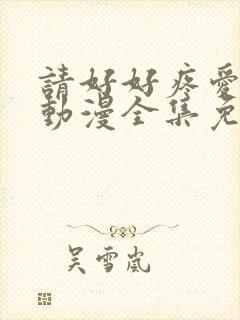 請好好疼愛
動漫全集免
吴雪嵐